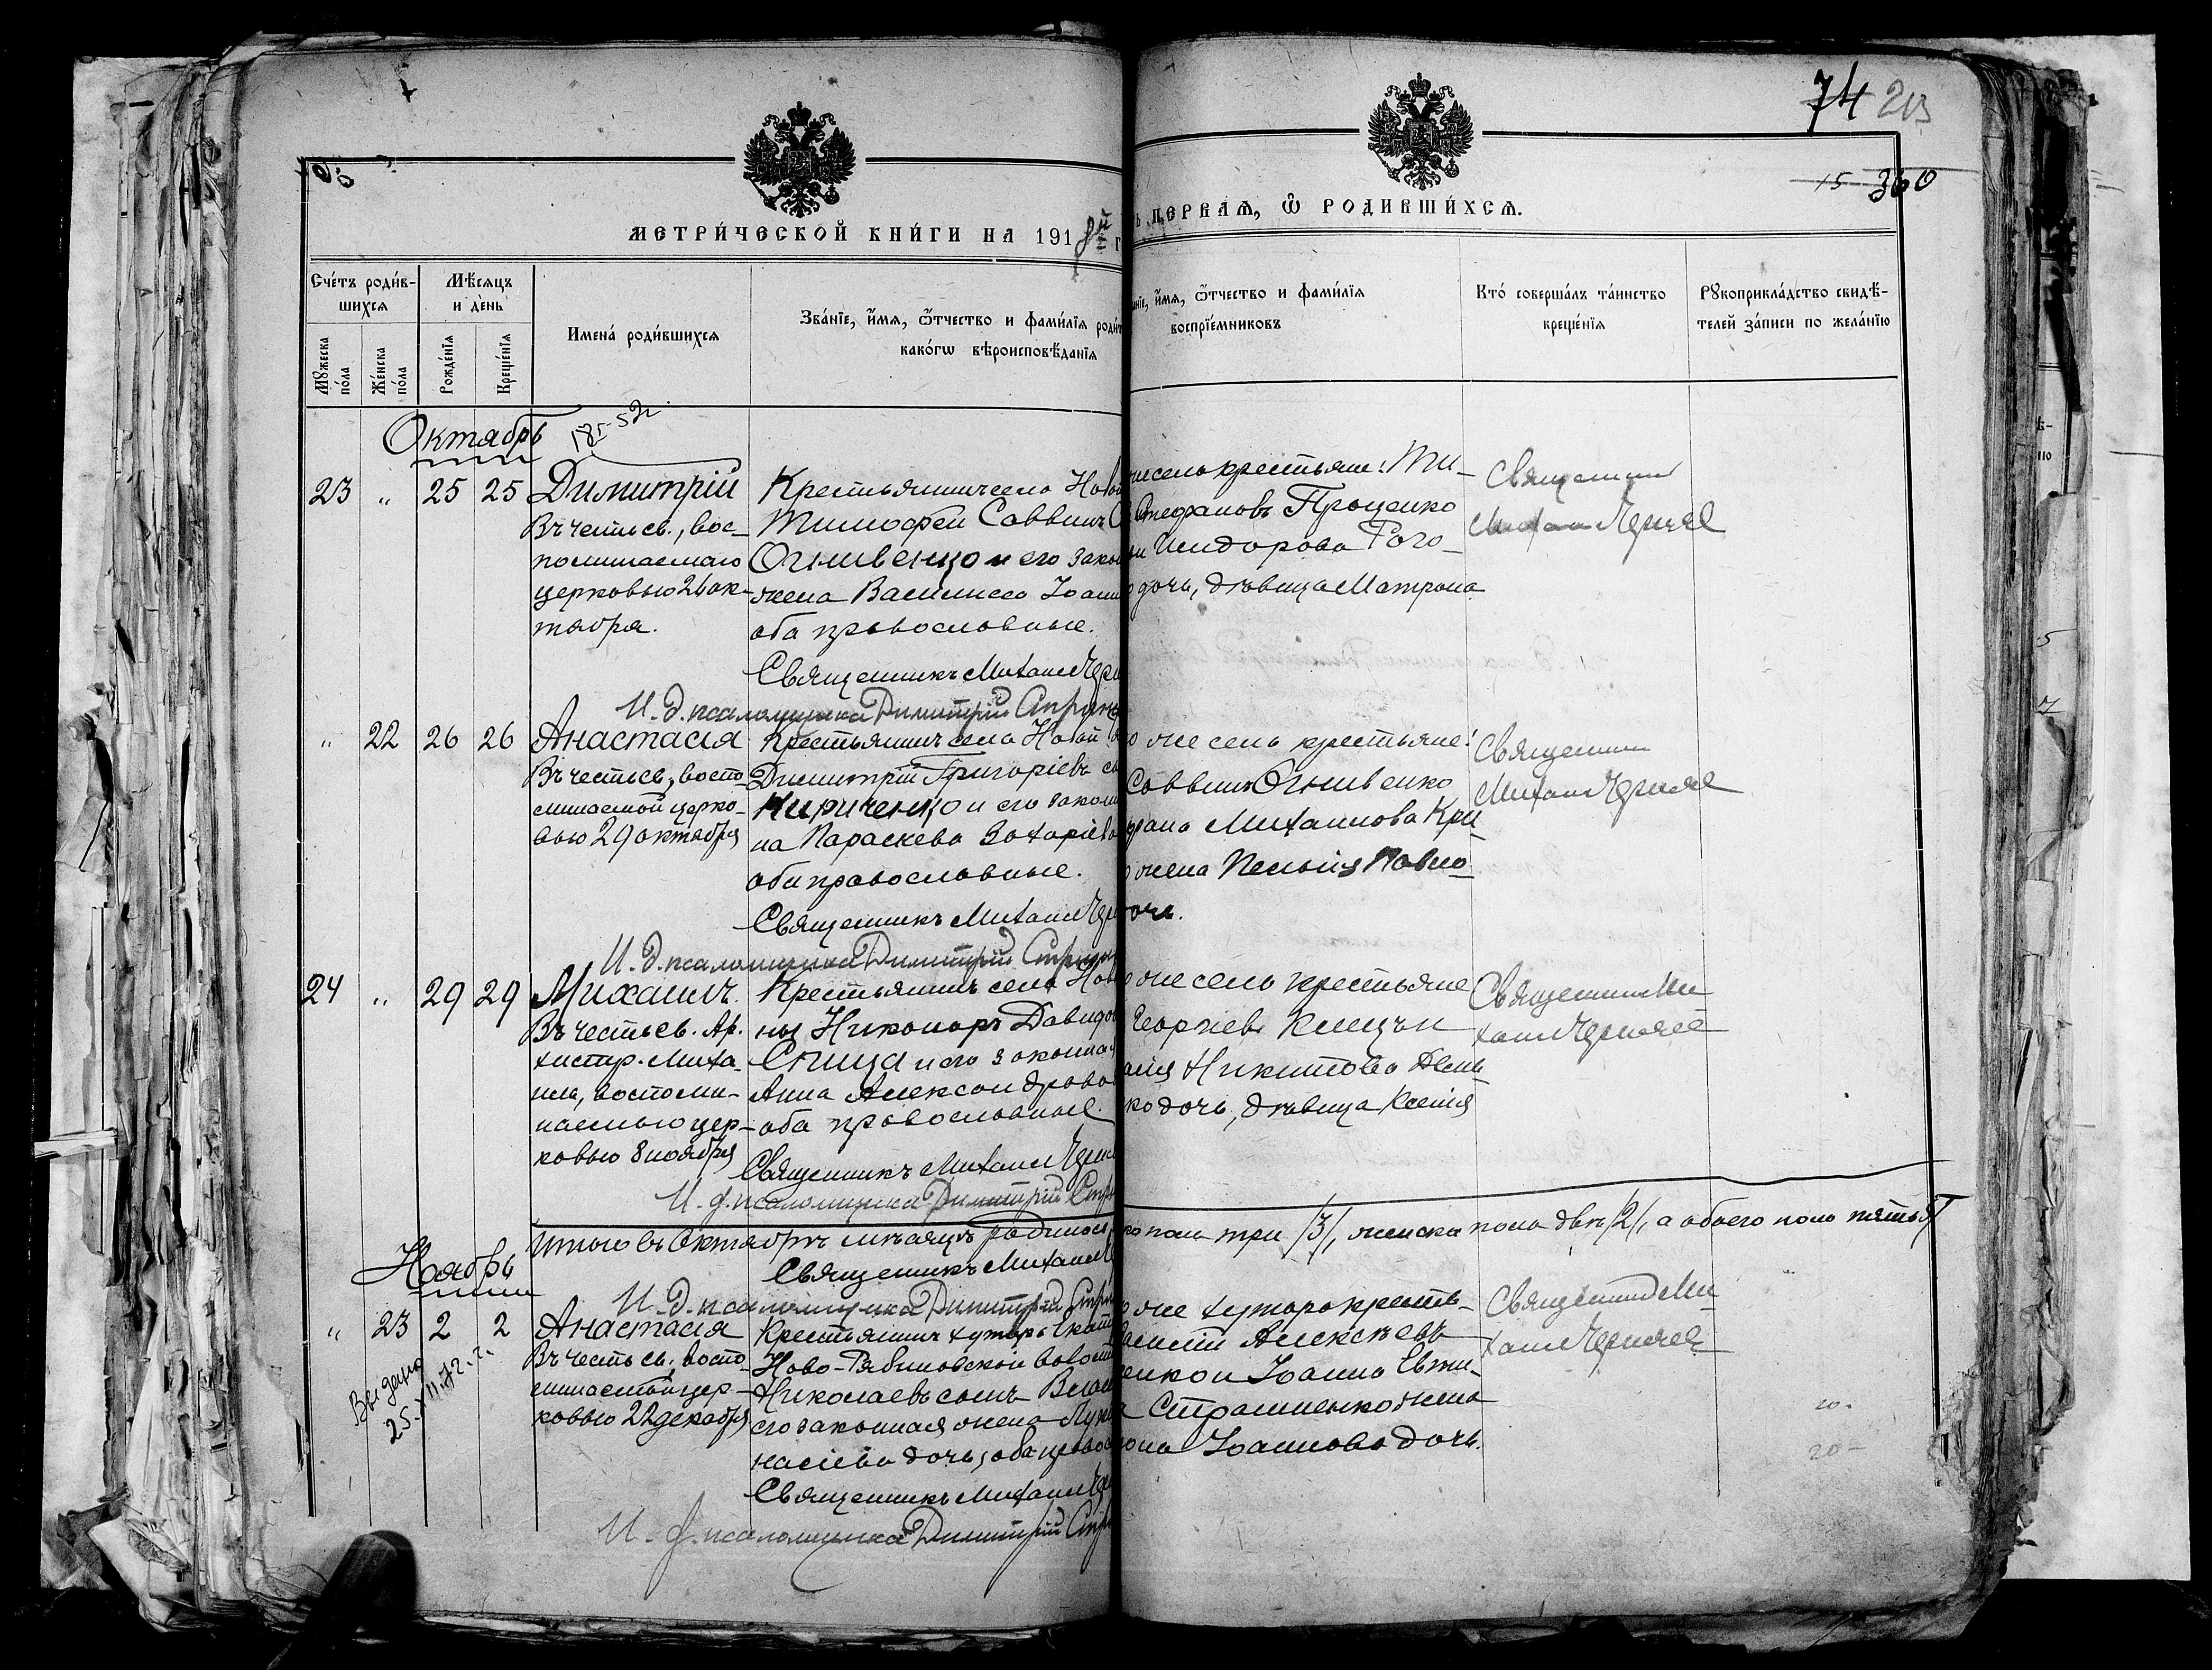 74 213
15 360
МЕТРИ́ЧЕСКОЙ КНИ́ГИ НА 1918й г
ПЕРВАЯ, Ѿ РОДИВШИ́ХСЯ.
Сче́тъ роди́в-
шихся
Мѣ́сяцъ
и де́нь
Мꙋ́жеска по́ла
Же́нска по́ла
Рожде́нїя
Креще́нїя
Имена́ роди́вшихся
Зва́нїе, и́мя, ѿ́чество и фами́лїя роди́т
како́гѡ вѣроисповѣ́данїя
и́мя, ѿ́чество и фами́лїя
воспрїе́мниковъ
Кто́ соверша́лъ та́инство
креще́нїя
Рꙋкоприкла́дство свидѣ́-
телей за́писи по жела́нїю
Октябрь
23 " 25 25 Димитрій
Въ честь св., вос-
поминаемаго
церковью 26 ок-
тября.
Крестьянинъ села Новой
Тимофей Саввинъ
Огнивенко и его закон
жена Василисса Іоанн
оба православные.
Священникъ Михаилъ Чер
И. д. псаломщика Димитрій
же села крестьяне: Ти-
Стефановъ Проценко
Исидорова Рого-
дочь, дѣвица Матрона
Священникъ
Михаилъ Черняев
" 22 26 26 Анастасія
Въ честь св., воспо-
минаемой церко-
вью 29 октября
Крестьянинъ села Новой
Димитрій Григоріевъ сы
Кириченко и его закон
на Параскева Захаріева
оба православные.
Священникъ Михаилъ Чер
И. д. псаломщика Димитрій
же селъ крестьяне:
Саввинъ Огнивенко
Михаилова Кри-
жена Павло-
очь.
Священникъ
Михаилъ Черняев
24 " 29 29 Михаилъ.
Въ честь св. Ар-
хистр. Миха-
ила, воспоми-
наемаго цер-
ковью 8 ноября
Крестьянинъ села Ново
ны Никаноръ Давидо
Спица и его законная
Анна Александрова
оба православные.
Священникъ Михаилъ Чер
И. д. псаломщика Димитрій
же селъ крестьяне
Георгіевъ
Никитова
ко дочь, дѣвица Ксенія
Священникъ Ми-
хаилъ Черняев
Итого въ Октябрѣ мѣсяцѣ родилось
пола три /3/, женска пола двѣ /2/, а обоего пола пять /5/
Священникъ Михаилъ
И. д. псаломщика Димитрій
Ноябрь
" 23 2 2 Анастасія
Въ честь св., воспо-
минаемой цер-
ковью 22 декабря
Крестьянинъ хутора Екат
Ново-Рябиновской волости
Николаевъ сынъ
его законная жена Лук
насіева дочь, оба правос
Священникъ Михаилъ Чер
И. д. псаломщика Димитрій
же хутора кресть-
Алексѣевъ
енко и Іоанна Евти-
Страшненко жена
Іоаннова дочь.
Священникъ Ми-
хаилъ Черняев
Выдано